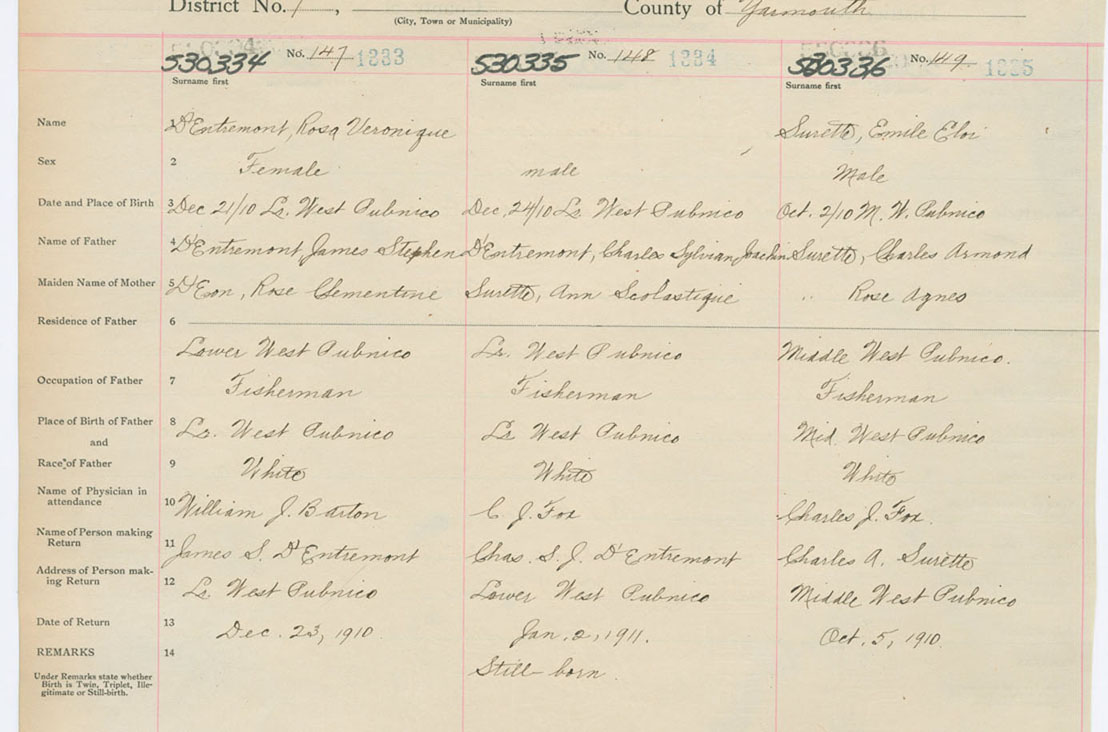 District No. 1, County of Yarmouth
(City, Town or Municipality)
530334 No. 147 1333 530335 No. 148 1334 530336 No. 149 1335
Surname first Surname first Surname first
Name 1 D'Entremont, Rose Veronique Surette, Emile Eloi
Sex 2 Female male Male
Date and Place of Birth 3 Dec 21/10 Lr. West Pubnico Dec, 24/10 Lr. West Pubnico Oct. 2/10 M. W. Pubnico
Name of Father 4 D'Entremont, James Stephen D'Entremont, Charles Sylvian Joachin Surette, Charles Armond
Maiden Name of Mother 5 D'Eon, Rose Clementine Surette, Ann Scolastique " Rose Agnes
Residence of Father 6
Lower West Pubnico Lr. West Pubnico Middle West Pubnico.
Occupation of Father 7 Fisherman Fisherman Fisherman
Place of Birth of Father 8 Lr. West Pubnico Lr West Pubnico Mid West Pubnico
and
Race of Father 9 White White White
Name of Physician in
attendance 10 William J. Barton C. J. Fox Charles J. Fox.
Name of Person making
Return 11 James S. D'Entremont Chas. S. J. D'Entremont Charles A. Surette
Address of Person mak-
ing Return 12 Lr. West Pubnico Lower West Pubnico Middle West Pubnico
Date of Return 13 Dec. 23, 1910 Jan. 2, 1911. Oct. 5, 1910.
REMARKS 14 Still born
Under Remarks state whether
Birth is Twin, Triplet, Ille-
gitimate or Still-birth.